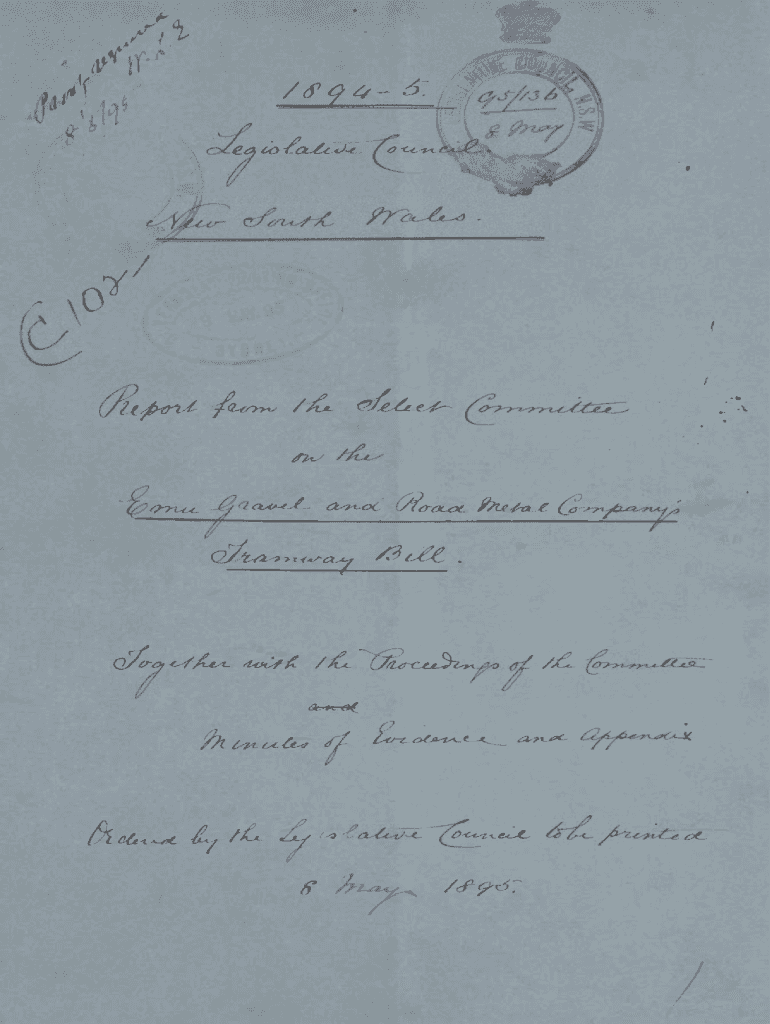 8/5/95
1894-5.
LEGISLATIVE COUNCIL, N.S.W
95/136
8 May
Legislative Council
New South Wales.
C102
Report from the Select Committee
on the
Emu Gravel and Road Metal Company's
Tramway Bill.
Together with the Proceedings of the Committee
and
Minutes of Evidence and Appendix
Ordered by the Legislative Council to be printed
8 May 1895.